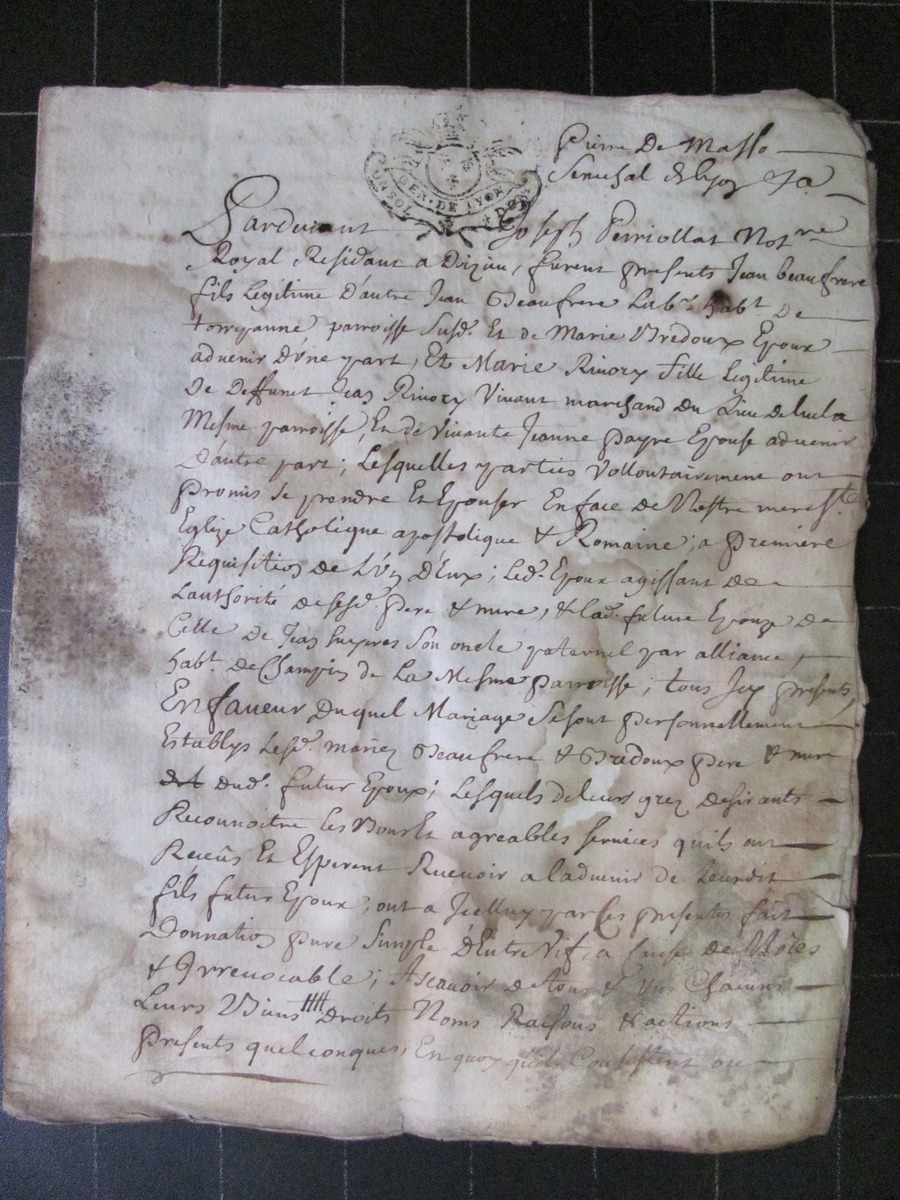 Pierre De Masso
Senechal de Lyon
GEN. DE LYON
Pardevant Joseph Perriollat Not.re
Royal Residant a Doizieu, furent presents Jean beaufrere
fils Legitime D'autre Jean Beaufrere Lab.r habt De
parroisse Susd. Et de Marie Bredoux Epoux
advenir d'Une part, Et Marie Rivory fille Legitime
De Deffunt Jean Rivory Vivant marchand du Lieu de
Mesme parroisse, Et de Vivante Jeanne payre Epouse advenir
D'autre part; Lesquelles parties Vollontairement ont
Promis Se prendre Et Epouser En face de Nostre mere Ste
Eglize Catholique apostolique & Romaine; a Premiere
Requisition de L'Un D'Eux; Led. Epoux agissant De
Lauthorité desesd. pere & mere, & Lad. future Epouze De
Celle de Jean Son oncle paternel par alliance,
habt. de de La Mesme parroisse; tous Icy presents,
En faveur Duquel Mariage Se sont personnellement
Establys Lesd. mariez Beaufrere & Bredoux pere & mere
dud. futur Epoux; Lesquels de leurs grez desirants
Reconnoitre les Bons Et agreables services quils ont
Receûs Et Esperent Recevoir a ladvenir de Leurdit
fils futur Epoux, ont a Icelluy par Ces presentes fait
Donnation pure Simple D'Entre Vif, a Cause de Nôces
& Irrevocable; Ascavoir de tous & Uns Chacuns
Leurs Biens Droits Noms Raisons & actions
Presents quelconques, En quoy quils Consistent ou